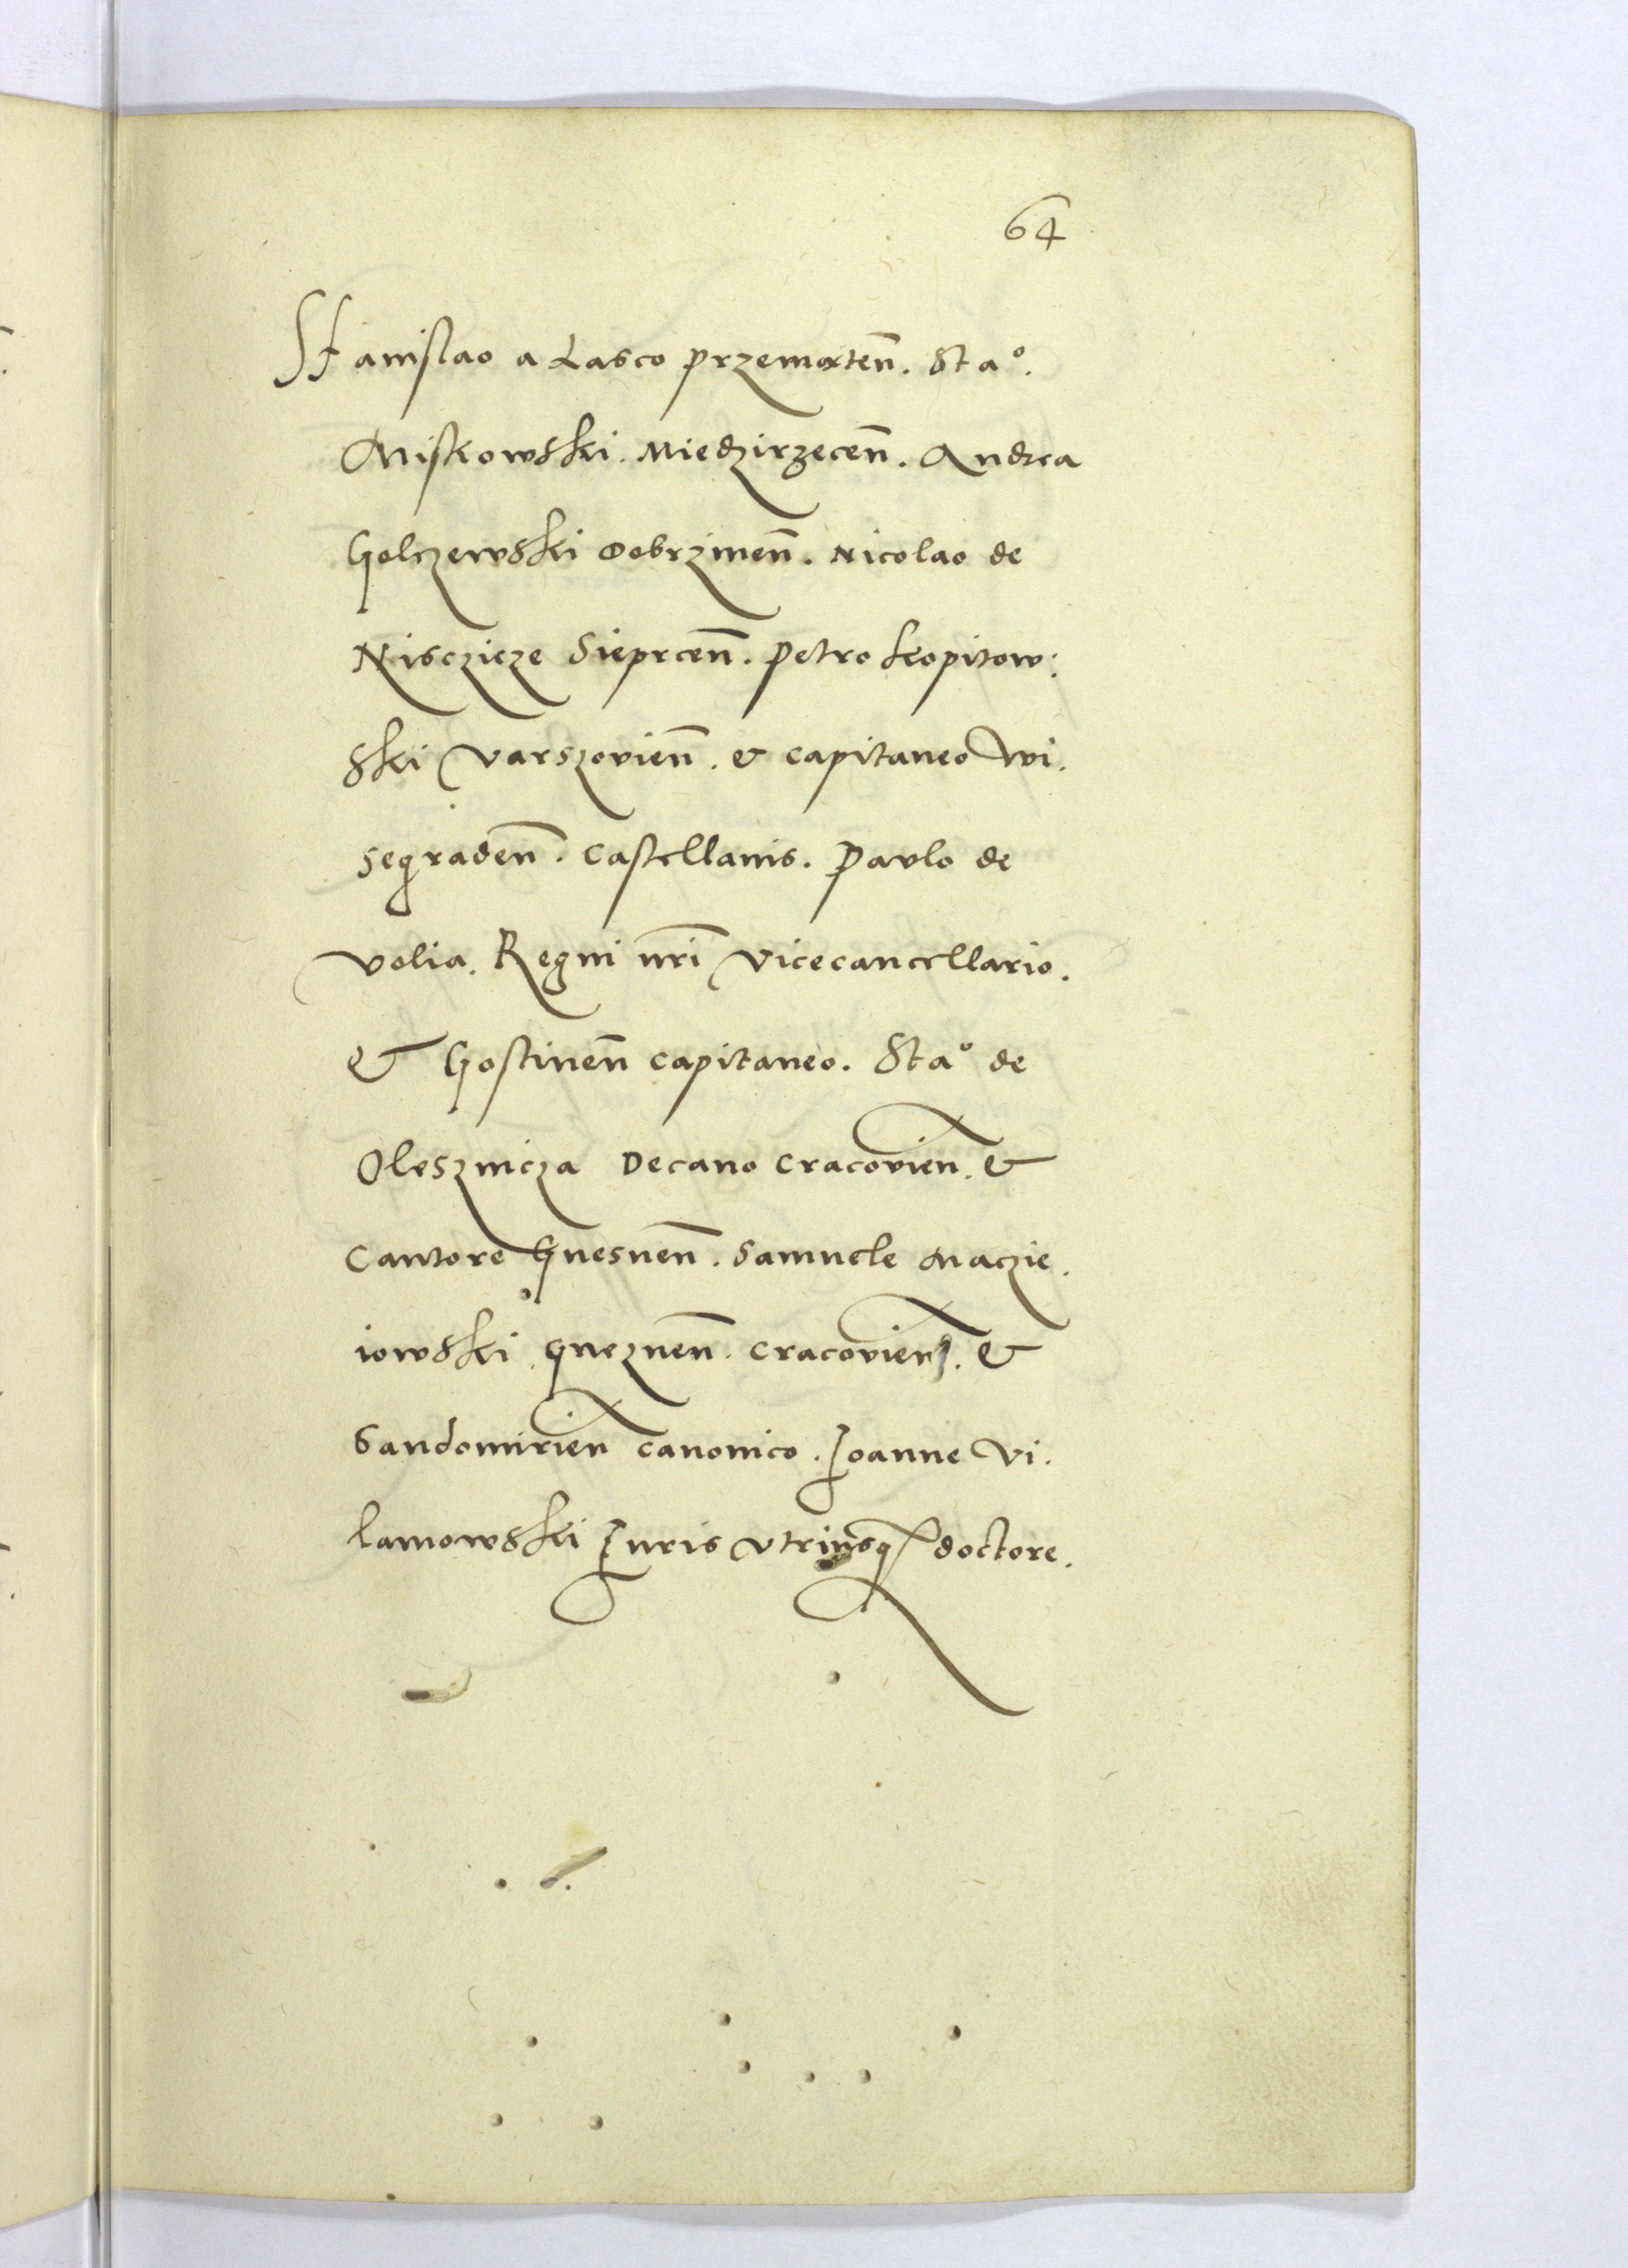 64
Stanislao a Lasco przemꝍten̄. Staº.
Miskowski. Miedzirzecen̄. Andrea
Golczewski Dobrzinen̄. Nicolao de
Nisczicze Sieprcen̄. Petro Kopitow:
ski Varszovien̄. & capitaneo Wi.
segraden̄. Castellanis. Pavlo de
Volia. Regni nr̄i Vicecancellario.
& Gostinen̄ capitaneo. Staº de
Olesznicza Decano Cracovien̄. &
Cantore Gnesnen̄. Samuele Maczie.
iowski. gneznen̄. Cracovien̄. &
Sandomirien̄ canonico. Joanne Vi.
lamowski Juris Vtriusq doctore.